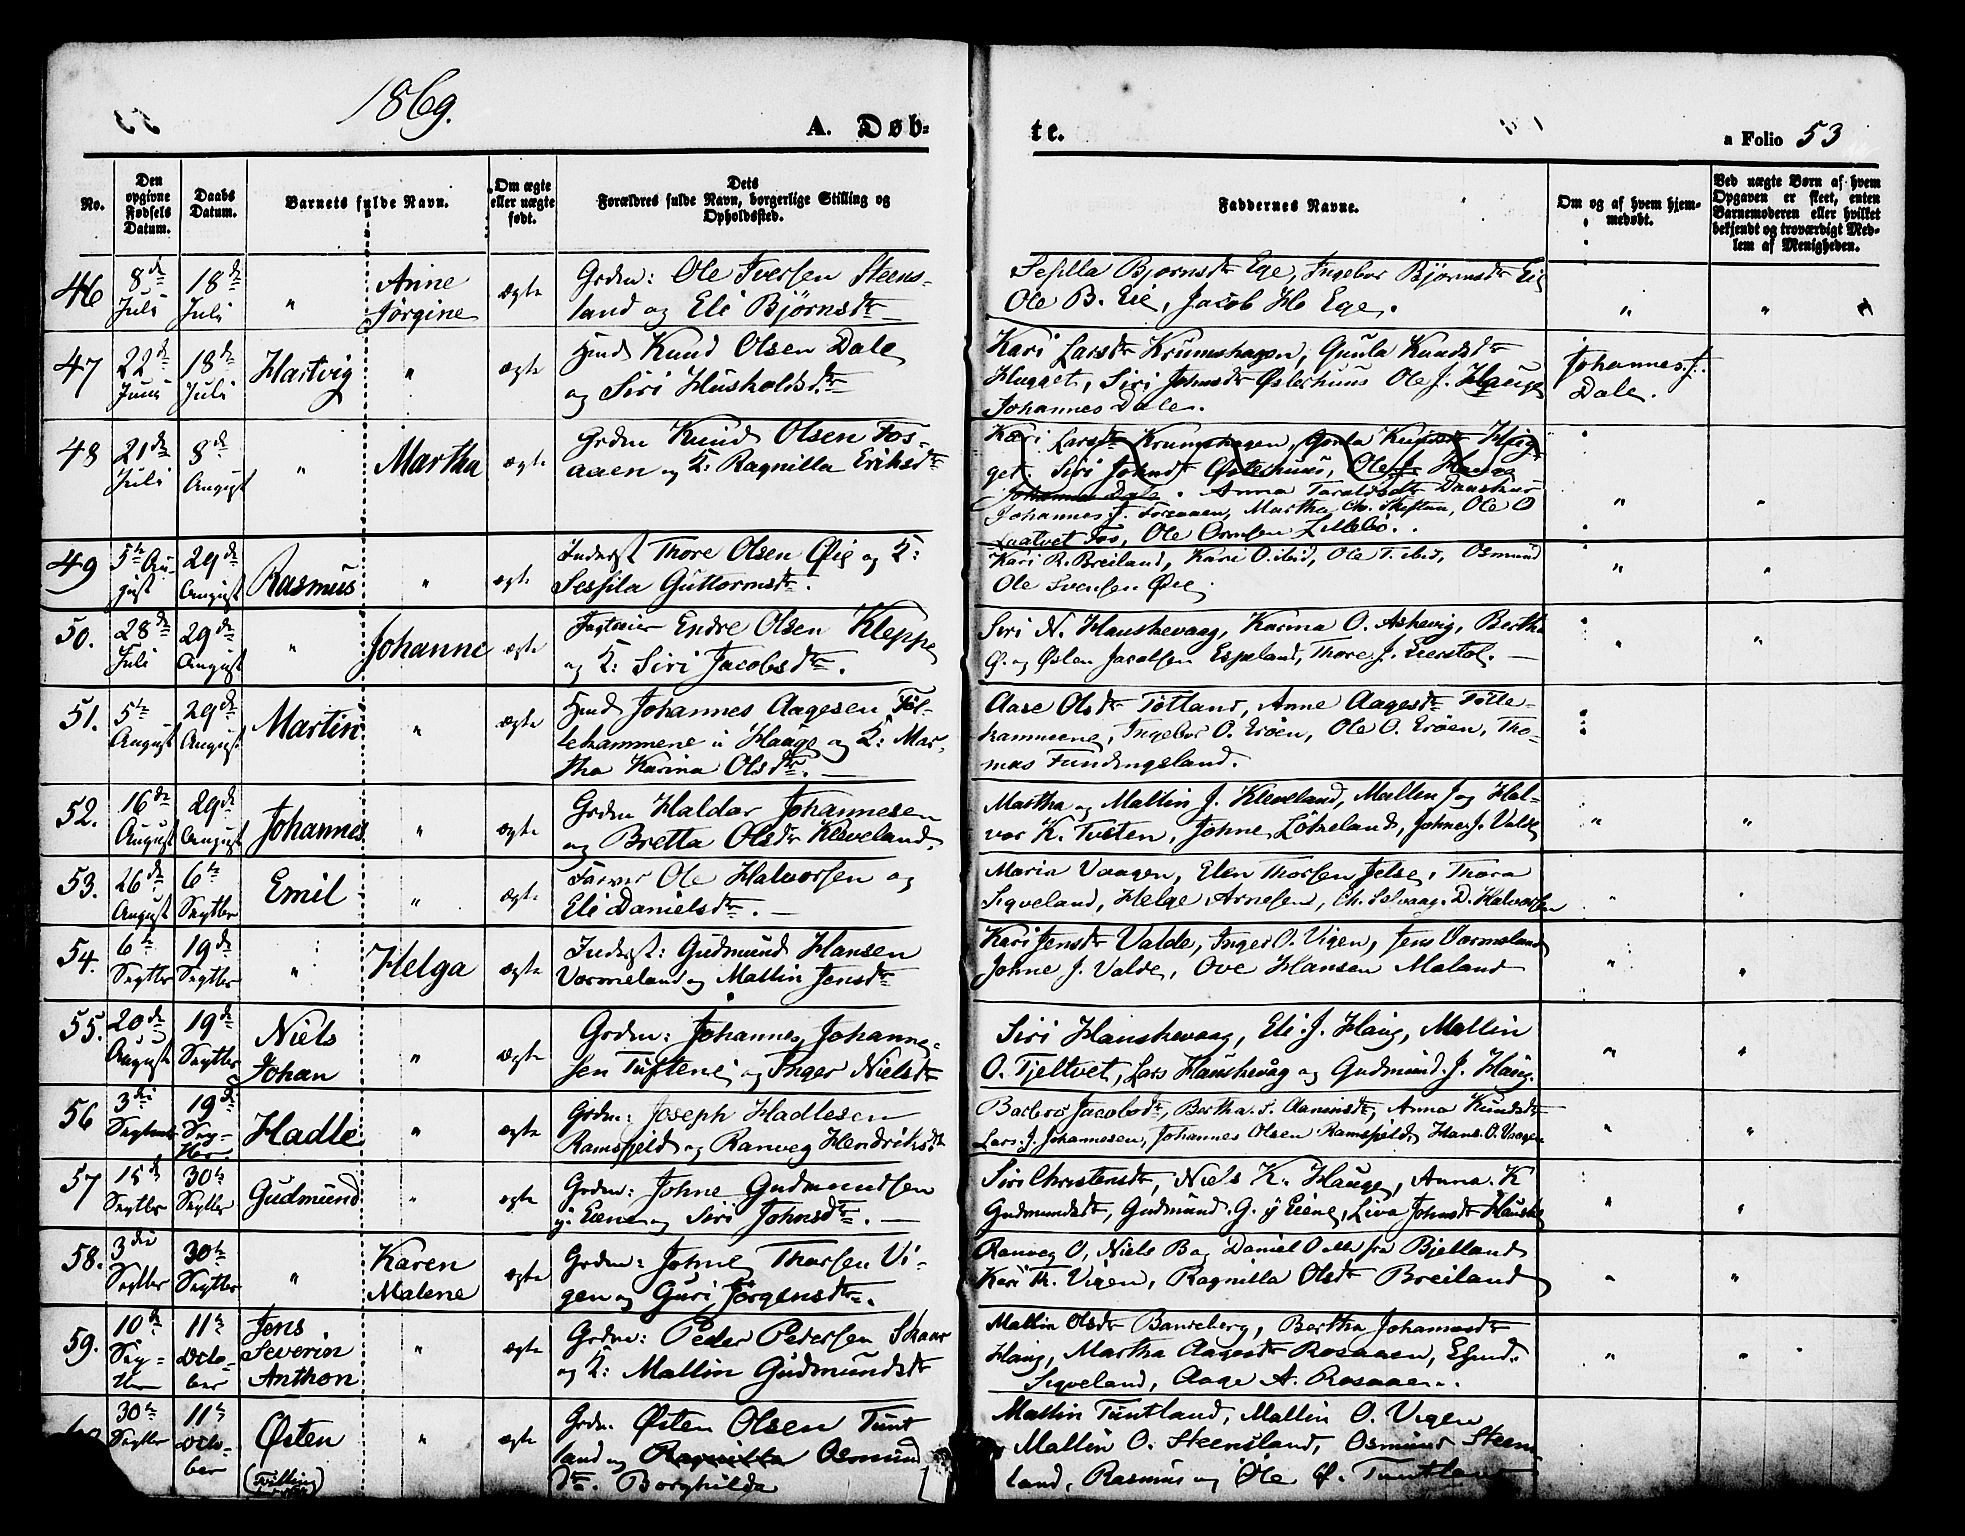 1869.
A. Døb-
te.
a Folio 53
No.
Den opgivne Fødsels Datum.
Daabs Datum.
Barnets fulde Navn.
Om ægte eller uægte født.
Dets Forældres fulde Navn, borgerlige Stilling og Opholdssted.
Faddernes Navne.
Om og af hvem hjemmedøbt.
Ved uægte Børn af hvem Opgaven er skeet, enten Barnemoderen eller hvilket bekjendt og troværdigt Medlem af Menigheden.
46
8de Juli
18de Juli
"
Anne
Jørgine
ægte
Grdm: Ole Iversen Steens-
land og Eli Bjørnsdtr
Sesilla Bjørnsdtr Ege, Ingebor Bjørnsdtr Eie
Ole B. Eie, Jacob H. Ege.
47
22de Juni
18de Juli
Hartvig
"
ægte
Hmd Knud Olsen Dale
og Siri Husholdsdtr
Kari Larsdtr Krumshagen, Gunla Knudsdtr
Hugget, Siri Johnsdtr Østerhuus Ole J. Hauge
Johannes Dale.
Johannes J.
Dale.
48
21de Juli
8de August
"
Martha
ægte
Grdm Knud Olsen Fos-
aaen og K: Ragnilla Eriksdtr
Kari Larsdtr Krumshagen, Gunla Knudsdtr Hug-
get. Siri Johnsdtr Østerhuus, Ole J. Hauge
Johannes Dale. Anna Taraldsdtr
Johannes J. Fosaaen, Martha Ch. Ole O
Fos, Ole Ormsen Lillebø.
49
5te August
29de August
Rasmus
"
ægte
Inderst Thore Olsen Øie og K:
Sessila Guttormsdtr.
Kari R. Breiland, Kari O. ibid, Ole T. ibid, Osmund
Ole Svensen Øie
50.
28de Juli
29de August
"
Johanne
ægte
Endre Olsen Kleppe
og K: Siri Jacobsdtr.
Siri N. Hauskevaag, Karina O. Askevig, Bertha
Ø. og Østen Jacobsen Espeland, Thore J. Eierstol.
51.
5te August
29de August
Martin
"
ægte
Hmd Johannes Aagesen Føl-
lekammene u Hauge og K: Mar-
tha Karina Olsdtr.
Aase Olsdtr Totland, Anne Aagesdtr Følle-
kammene, Ingebor O. Erøen, Ole O. Erøen, Tho-
mas Fundingsland.
52.
16de August
29de August
Johannes
"
ægte
Grdm Haldor Johannesen
og Bretta Olsdtr Kleveland.
Martha og Mallin J. Kleveland, Mallin J og Hal-
vor K. Tveten, Johne Løkeland, Johne J. Valde
53.
26de August
6te Septbr
Emil
"
ægte
Farver Ole Halvorsen og
Eli Danielsdtr.
Maria Vaagen, Elen Thorsen Jelse, Thora
Sigveland, Helge Arnesen, Ch. Selvaag. D. Halvorsen
54.
6te Septbr
19de Septbr
"
Helga
ægte
Inderst: Gudmund Hansen
Vormeland og Mallin Jensdtr
Kari Jensdtr Valde, Inger O. Vigen, Jens Vormeland
Johne J. Valde, Ove Hansen Maland
55.
20de August
19de Septbr
Niels
Johan
"
ægte
Grdm: Johannes Johanne-
sen Tuftene og Inger Nielsdtr
Siri Hauskevaag, Eli J. Haug, Mallin
O. Tjeltvet, Lars Hauskevåg og Gudmund J. Haug.
56
3die Septemb
19de Septbr
Hadle
"
ægte
Grdm: Joseph Hadlesen
Ramsfjeld og Ranveg Hendriksdtr
Barbro Jacobsdtr, Bertha S. Aanensdtr, Anna Knudsdtr
Lars J. Johannesen, Johannes Olsen Ramsfjeld, Hans O. Vaagen
57
15de Septbr
30te Septbr
Gudmund
"
ægte
Grdm: Johne Gudmundsen
y. Eiene og Siri Johnsdtr.
Siri Christensdtr, Niels K. Hauge, Anna K
Gudmundsdtr, Gudmund G. y Eiene, Liva Johnsdtr
58.
3die Septbr
30te Septbr
"
Karen
Malene
ægte
Grdm: Johne Thorsen Vi-
gen og Guri Jørgensdtr.
Ranveg O, Niels B og Daniel O alle fra Bjelland
Kari Th. Vigen, Ragnilla Olsdtr Breiland
59.
10de Septbr
11te October
Jens
Severin
Anthon
"
ægte
Grdm: Peder Pedersen Skaar
og K: Mallin Gudmundsdtr
Mallin Olsdtr Baneberg, Bertha Johannesdtr
Haug, Martha Aagesdtr Rosaaen, Edmd.
Sigveland, Aage A. Rosaaen.
30te Septbr
11te October
Østen
(Tvilling
"
ægte
Grdm: Østen Olsen Tunt
land og Ragnilla Osmund
dtr. Borghilda
Mallin Tuntland, Mallin O. Vigen
Mallin O. Steensland, Osmund Steens
land, Rasmus og Ole Ø. Tuntland